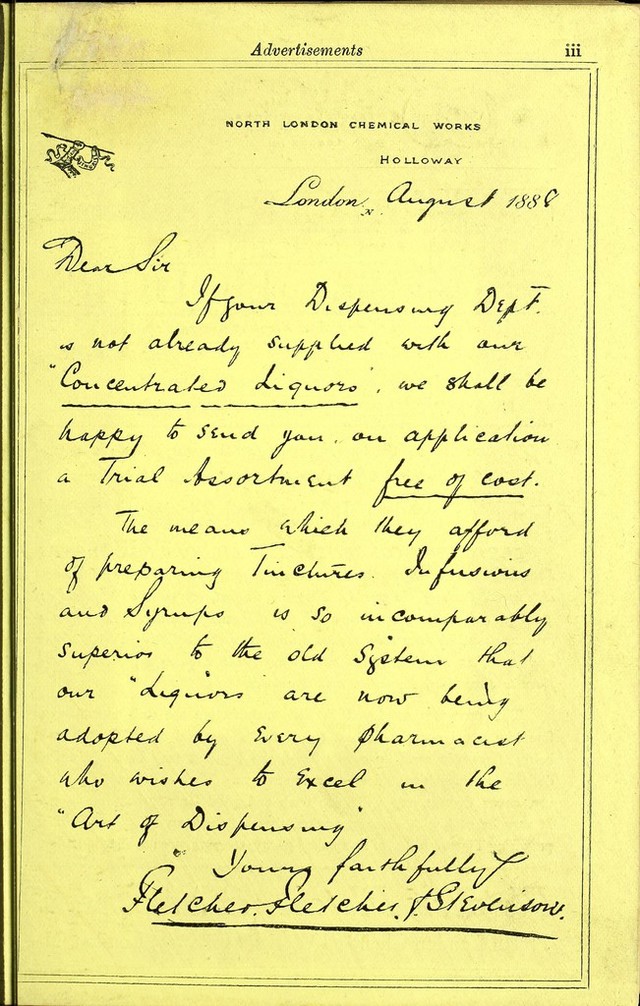 Advertisements iii
NORTH LONDON CHEMICAL WORKS
HOLLOWAY
London, N. August 1888
Dear Sir
If your Dispensing Dept.
is not already supplied with our
"Concentrated Liquors", we shall be
happy to send you, on application
a Trial Assortment free of cost.
The means which they afford
of preparing Tinctures. Infusions
and Syrups is so incomparably
superior to the old System that
our "Liquors" are now being
adopted by every Pharmacist
who wishes to Excel in the
"Art of Dispensing"
Yours faithfully
Fletcher, Fletcher & Stevenson.